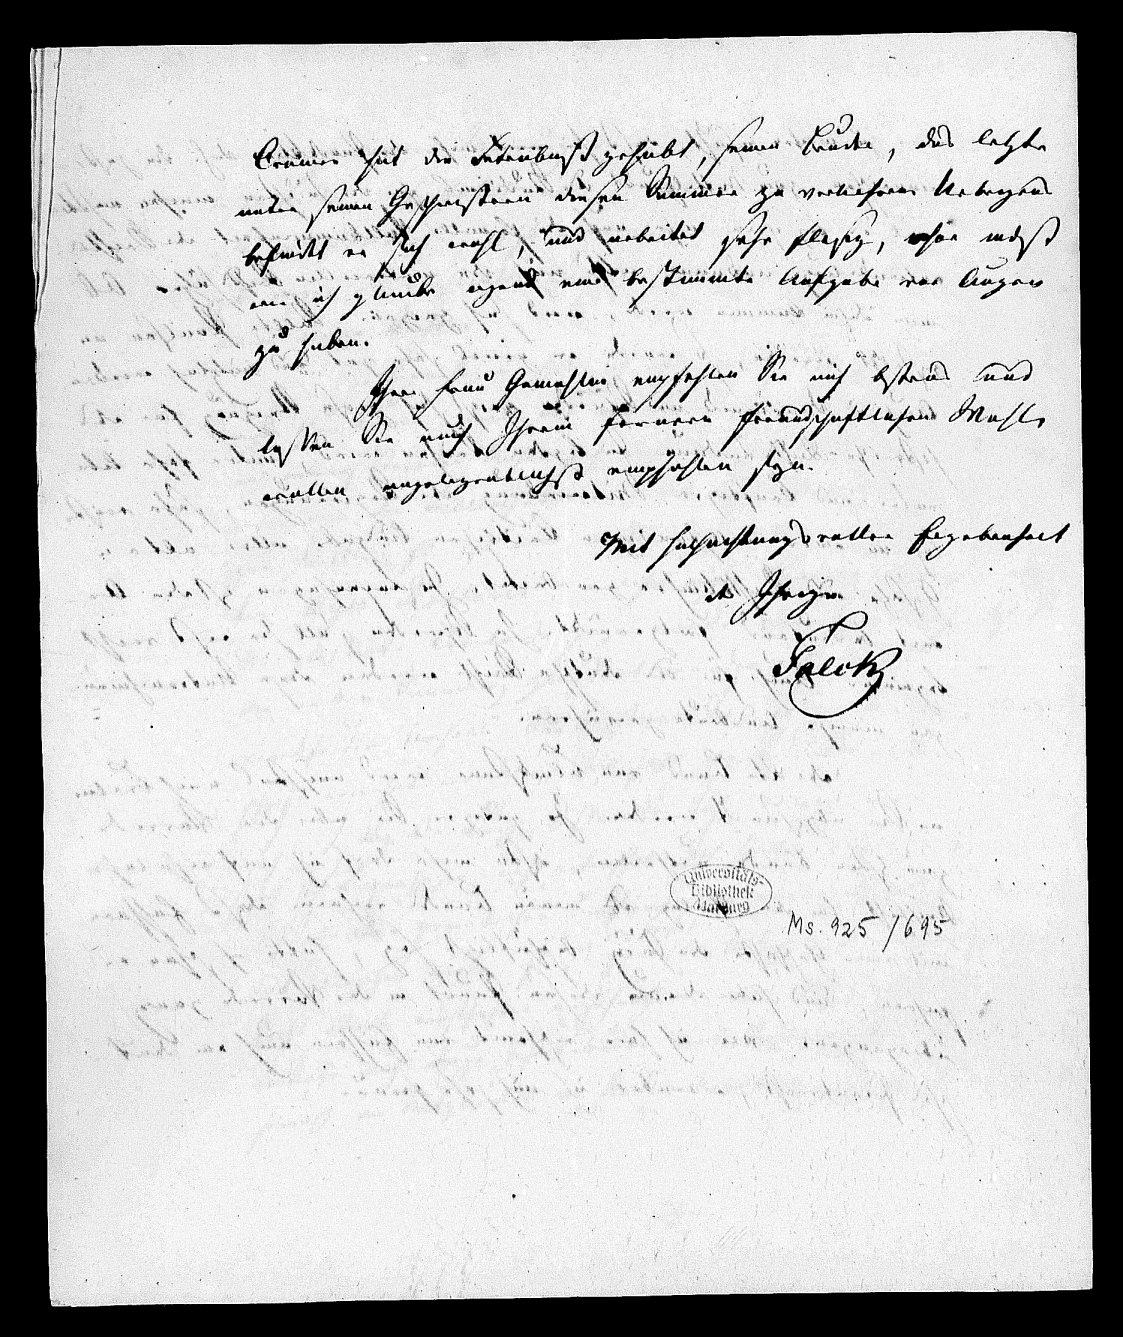 Cramer hat die Betrübniß gehabt, seinen Bruder, das letzte
unter seinen Geschwistern diesen Sommer zu verliehren. Uebrigens
befindet er sich wohl, und arbeitet sehr fleißig, ohne
wie ich glaube irgend eine bestimmte Aufgabe vor Augen
zu haben.
Ihrer Frau Gemahlin empfehlen Sie mich bestens und
lassen Sie mich Ihrem fernern freundschaftlichen Wohl-
wollen angelegentlichst empfohlen seyn.
Mit hochachtungsvoller Ergebenheit
der Ihrige
Falck
Universitäts-
Bibliothek
Marburg
Ms. 925/695